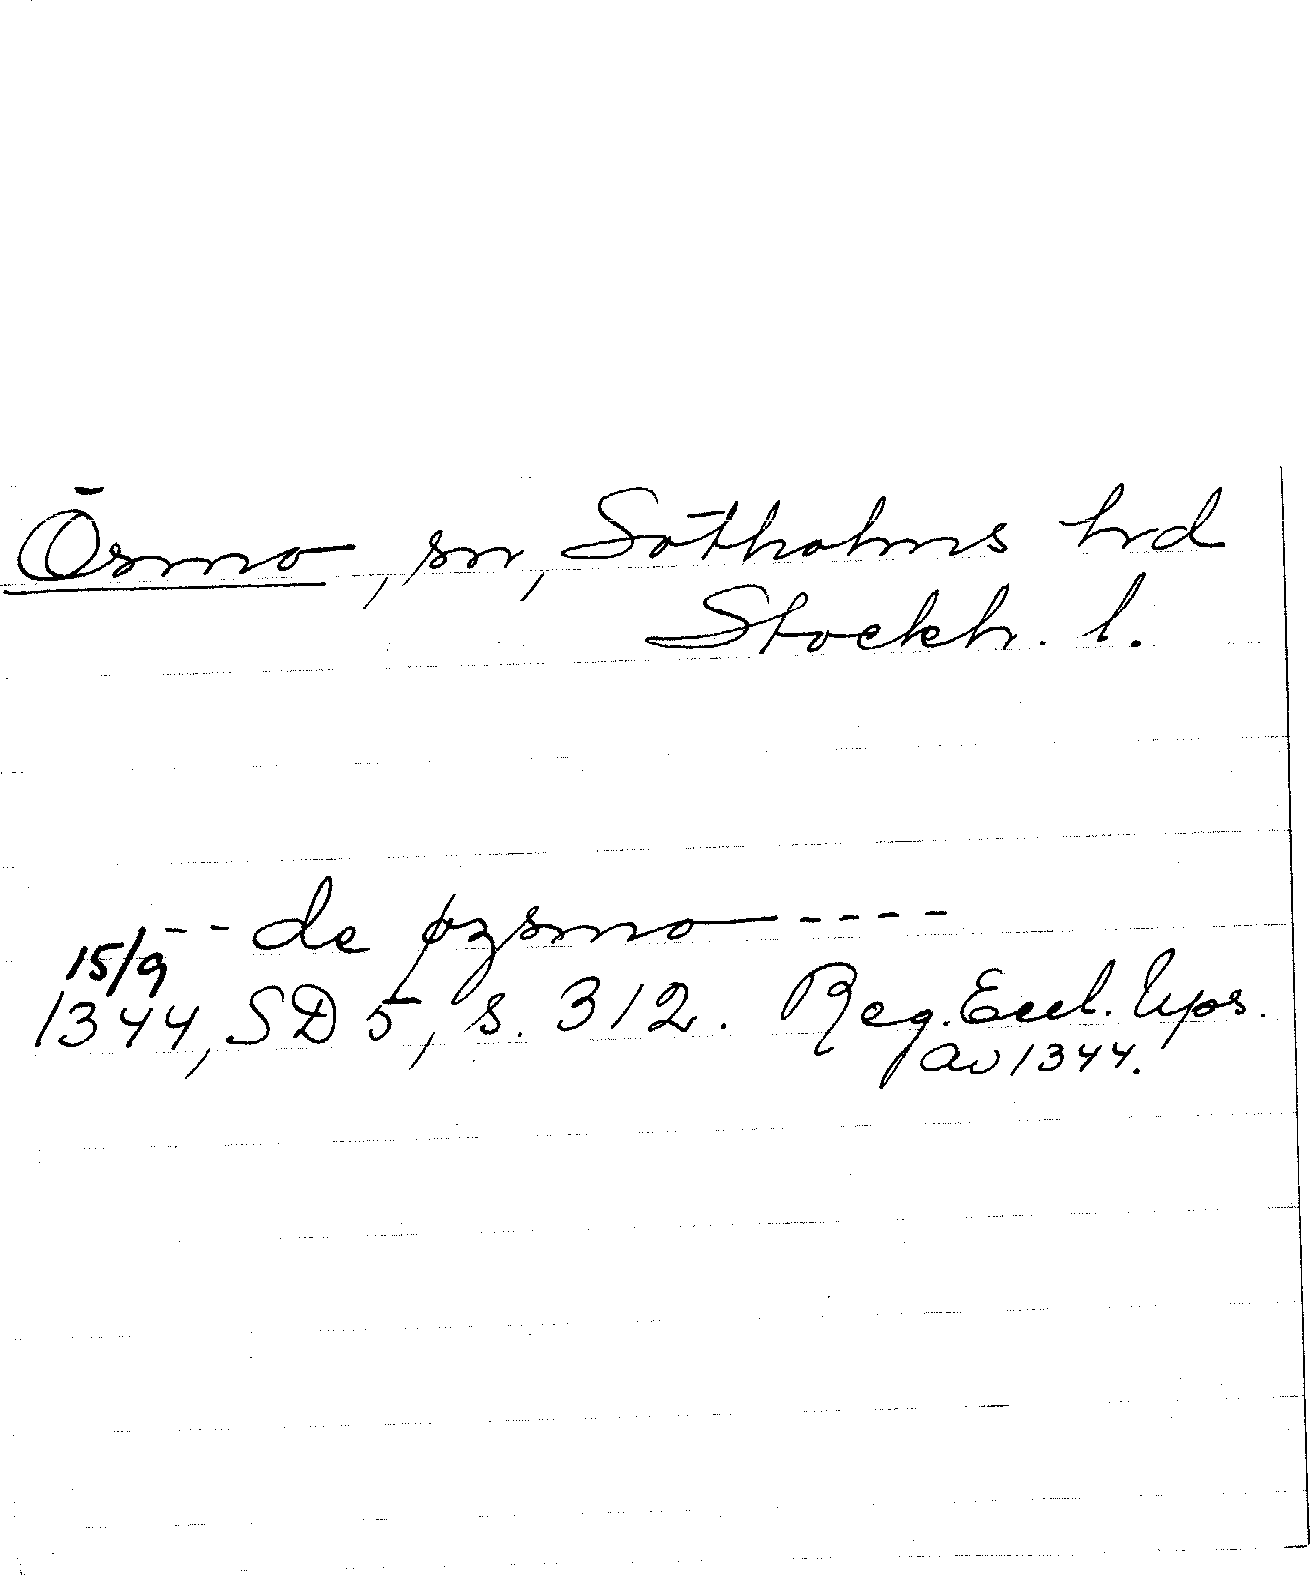 Ösmo, sn, Sotholms hrd
Stockh. l.
-- de øzsmo -----
15/9
1344, SD 5, s. 312. Reg. Eccl. Ups.
av 1344.